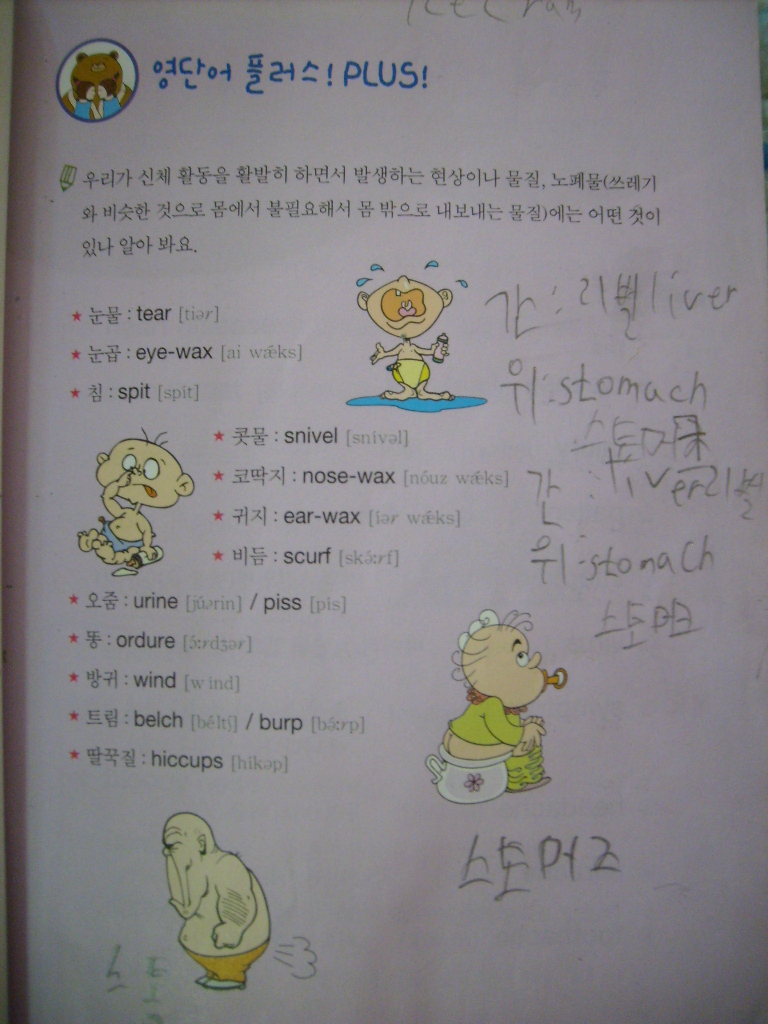 영단어 플러스! PLUS!
우리가 신체 활동을 활발히 하면서 발생하는 현상이나 물질, 노폐물(쓰레기
와 비슷한 것으로 몸에서 불필요해서 몸 밖으로 내보내는 물질)에는 어떤 것이
있나 알아 봐요.
★ 눈물 : tear [tiər]
★ 눈곱 : eye-wax [ai wǽks]
★ 침 : spit [spít]
★ 콧물 : snivel [snívəl]
★ 코딱지 : nose-wax [nóuz wǽks]
★ 귀지 : ear-wax [íər wǽks]
★ 비듬 : scurf [skə́ːrf]
★ 오줌 : urine [júərin] / piss [pis]
★ 똥 : ordure [ɔ́ːrdʒər]
★ 방귀 : wind [wind]
★ 트림 : belch [béltʃ] / burp [bə́ːrp]
★ 딸꾹질 : hiccups [híkəp]
간 : 리벌 liver
위 : stomach
스토머
간 : liver 리벌
위 : stomach
스토머크
스토머즈
스토